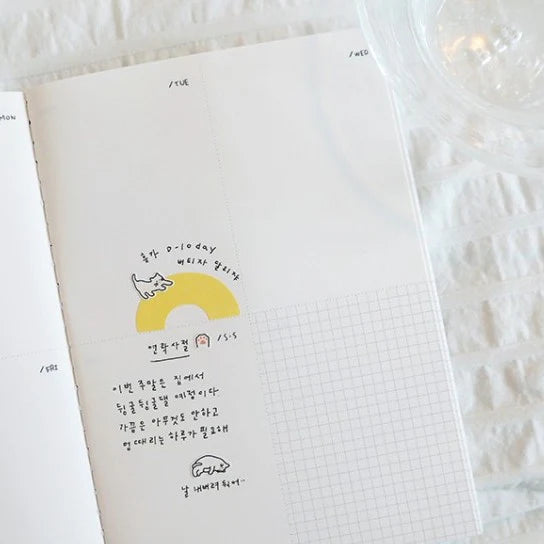 MON
/TUE
/WED
휴가 D-10day
버티자 말리자
연락사절
/S.S
/FRI
이번 주말은 집에서
뒹굴뒹굴댈 예정이다.
가끔은 아무것도 안하고
멍때리는 하루가 필요해
날 내버려 둬어..